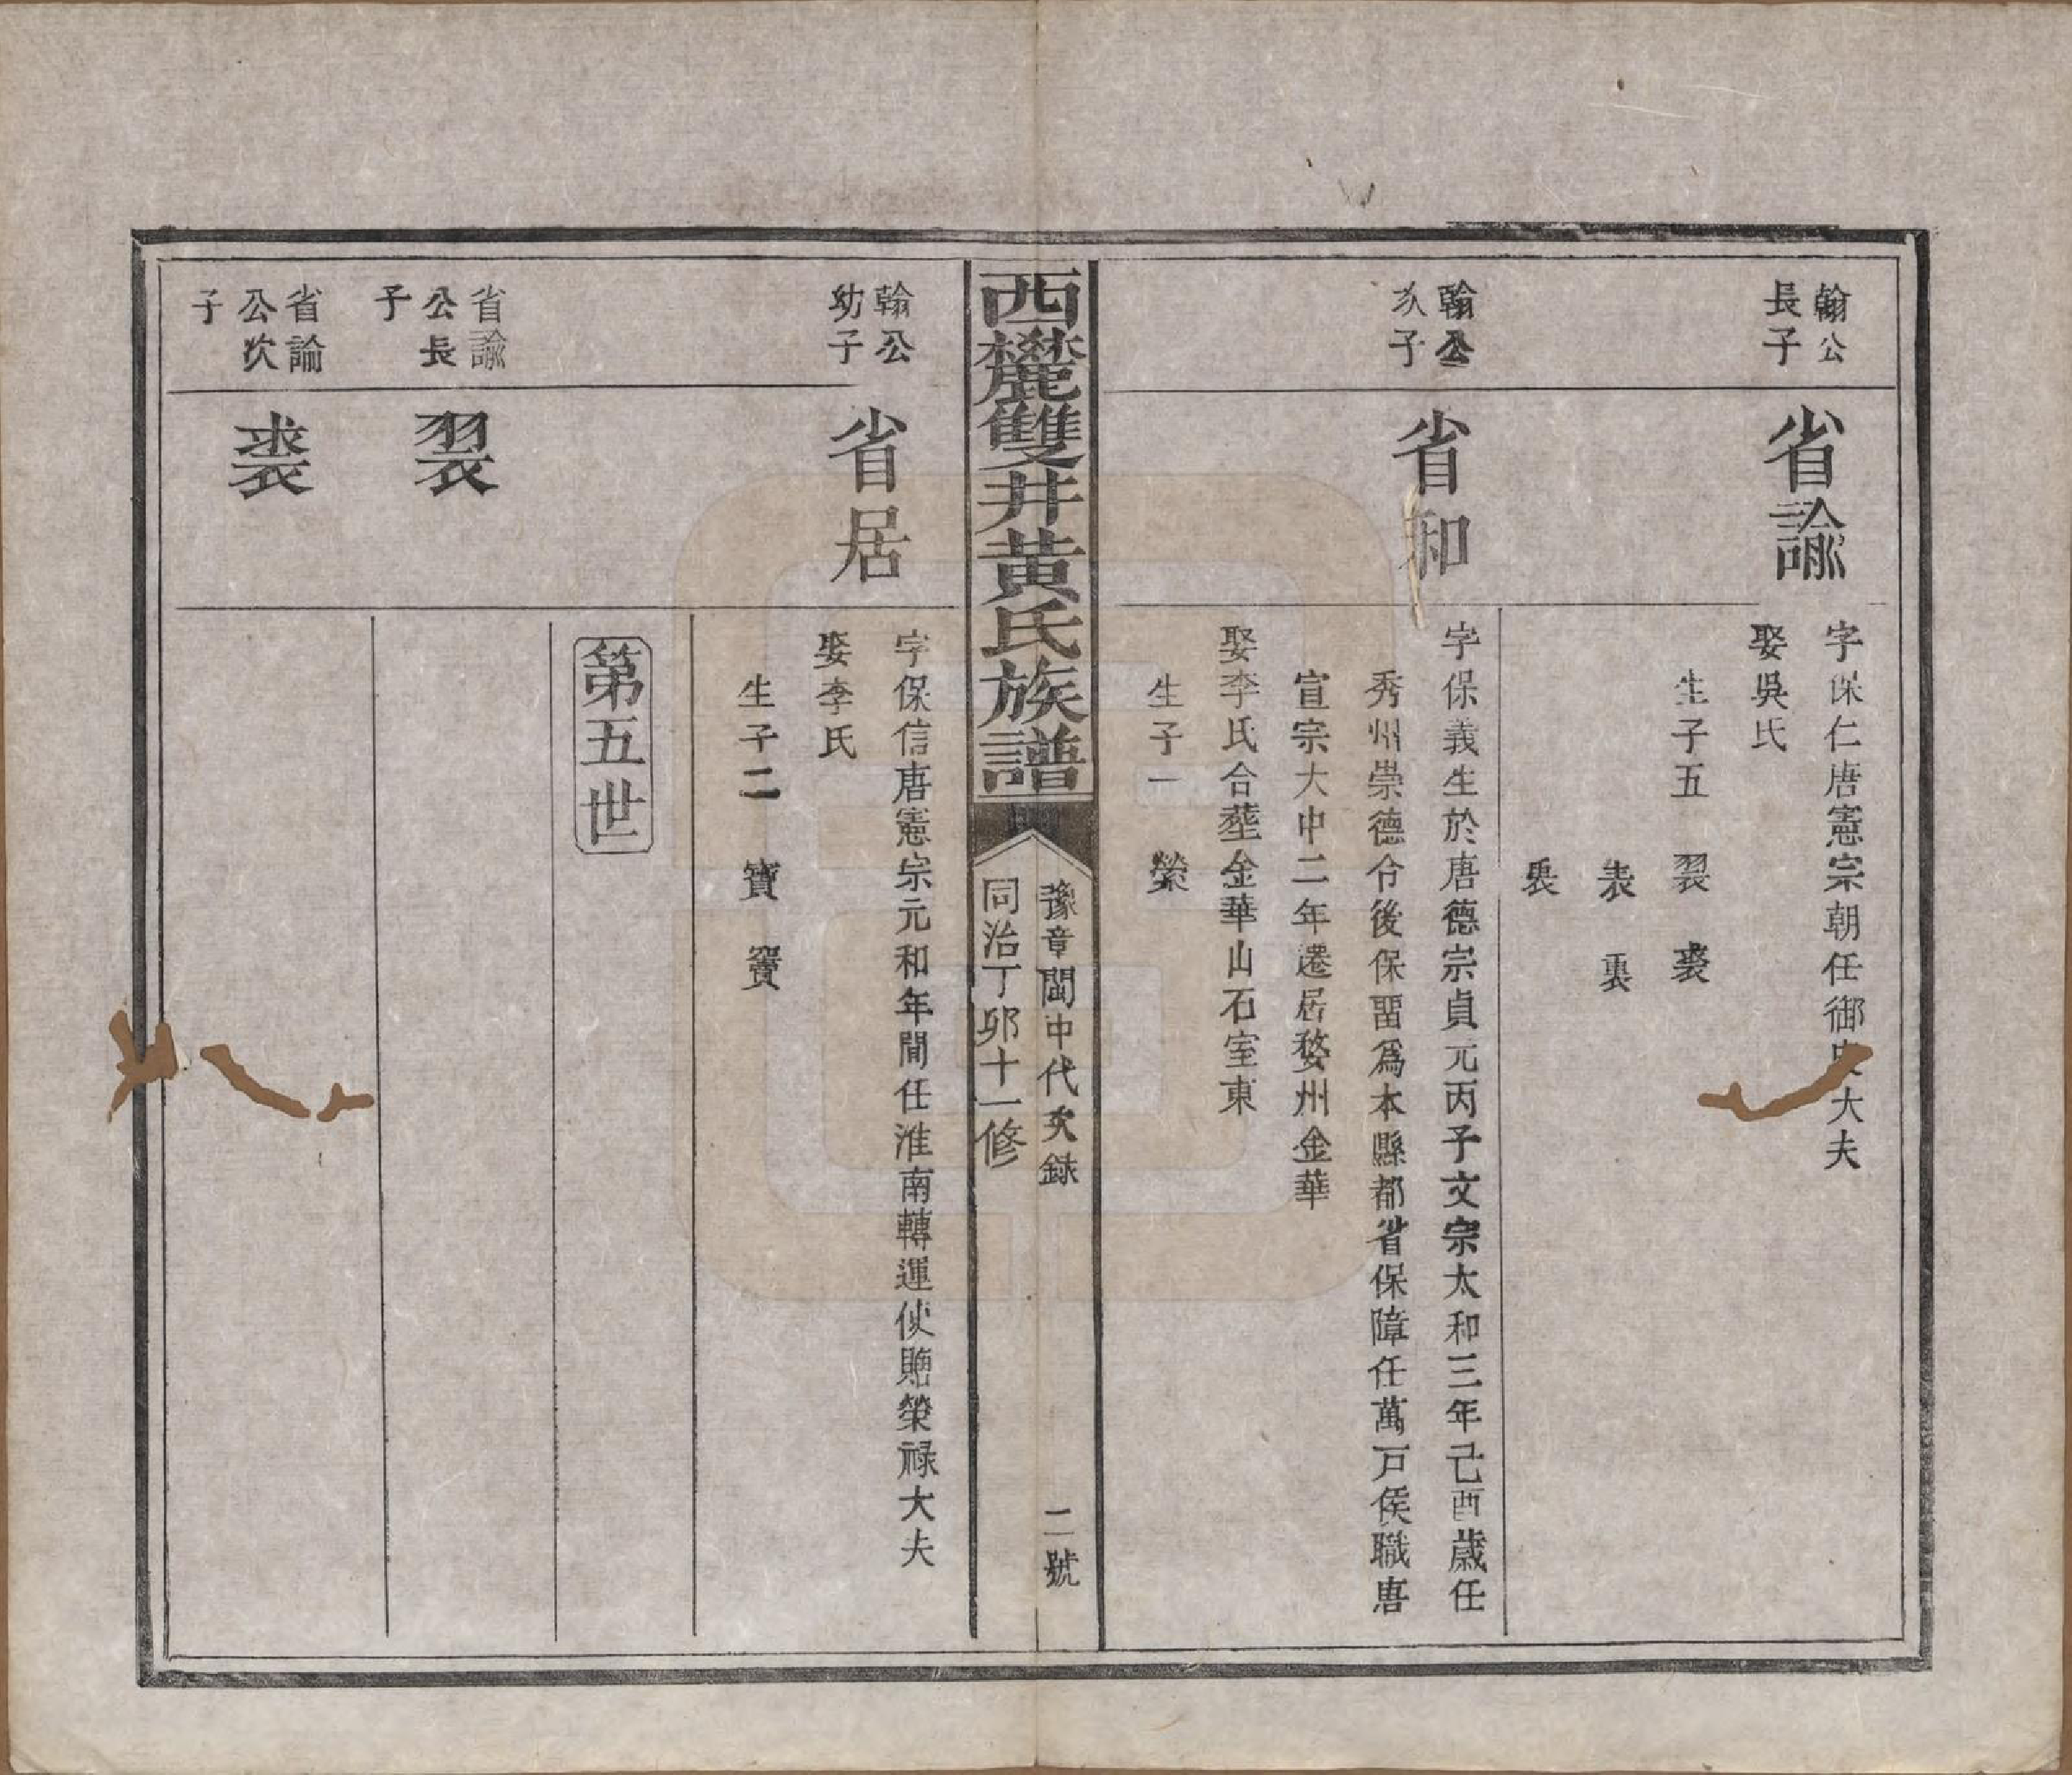 翰公
長子
省諭
字保仁唐憲宗朝任御史大夫
娶吳氏
生子五　裂　裘
表　裏
裊
翰公
次子
省和
字保義生於唐德宗貞元丙子文宗太和三年己酉歲任
秀州崇德令後保畱爲本縣都省保障任萬戸侯職唐
宣宗大中二年遷居婺州金華
娶李氏合塟金華山石室東
生子一　縈
西麓雙井黄氏族譜
豫章閩中代次錄
二號
同治丁卯十一修
翰公
幼子
省居
字保信唐憲宗元和年間任淮南轉運使贈榮祿大夫
娶李氏
生子二　寶　賨
第五世
省諭
公長
子
裂
省諭
公次
子
裘